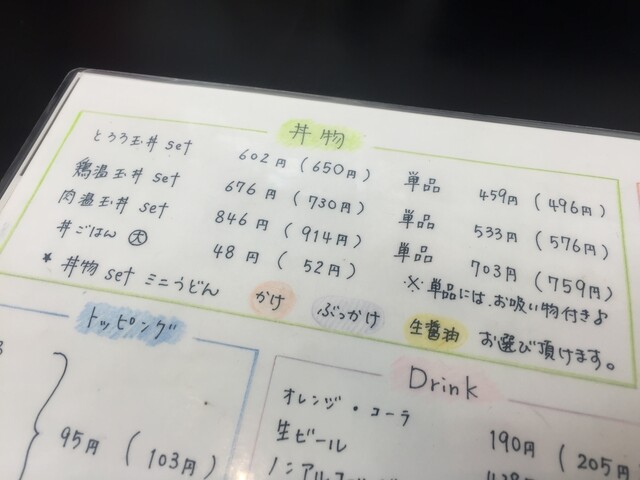 丼物
とろろ玉丼 set 602円 (650円) 単品 459円 (496円)
鶏温玉丼 set 676円 (730円) 単品 533円 (576円)
肉温玉丼 set 846円 (914円) 単品 703円 (759円)
丼ごはん 大 48円 (52円) ※単品には、お吸い物付きよ
* 丼物 set ミニうどん かけ ぶっかけ 生醤油 お選び頂けます。
トッピング
95円 (103円)
Drink
オレンジ・コーラ 190円 (205円
生ビール
ノンアルコール